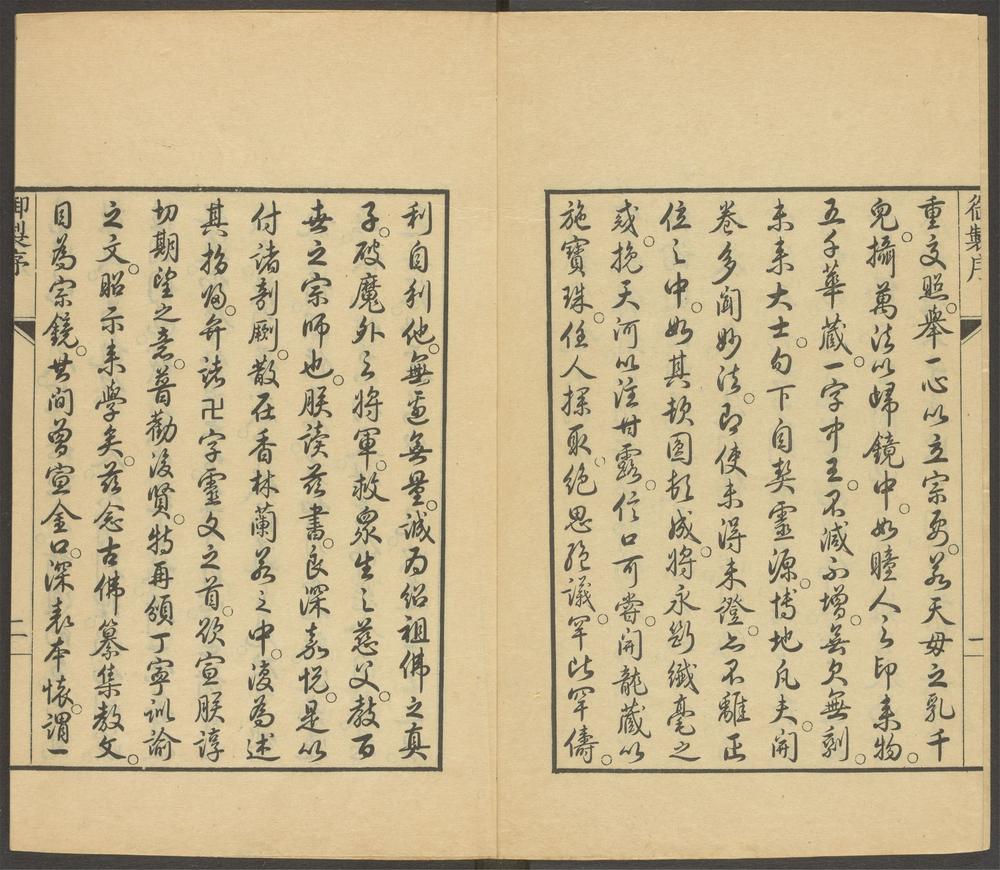 御製序
二
重交照。舉一心以立宗要。若天母之乳千
兒。攝萬法以歸鏡中。如瞳人之印來物。
五千華藏。一字中王。不減不增。無欠無剩。
未來大士。句下自契靈源。博地凡夫。開
卷多聞妙法。即使未得未證。亦不離正
位之中。如其頓圓頓成。將永斷纖毫之
惑。挽天河以注甘露。信口可嘗。開龍藏以
施寶珠。任人探取。絕思絕議。罕比罕儔。
利自利他。無邊無量。誠為紹祖佛之真
子。破魔外之將軍。救眾生之慈父。教百
世之宗師也。朕讀茲書。良深嘉悅。是以
付諸剞劂。散在香林蘭若之中。復為述
其指歸。弁諸卍字靈文之首。欲宣朕諄
切期望之意。普勸後賢。特再頒丁寧訓諭
之文。昭示來學矣。茲念古佛纂集教文。
目為宗鏡。其間曾宣金口。深表本懷。謂一
御製序
二